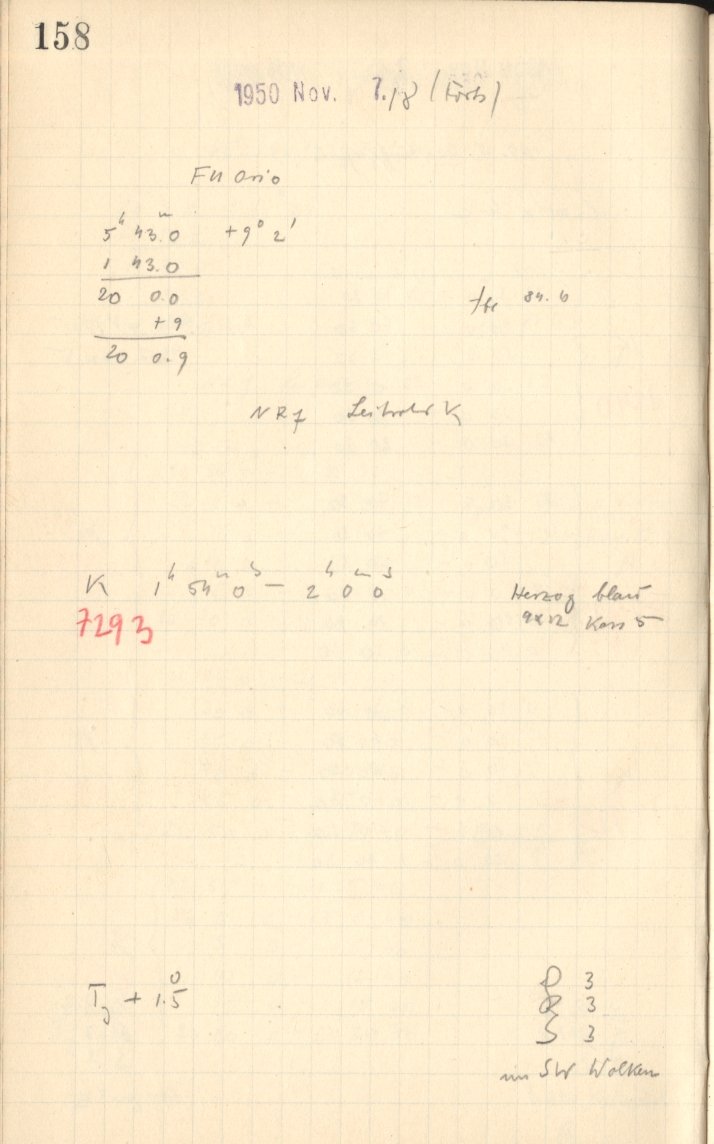 158
1950 Nov. 7./8 (Forts)
FU Orio
5h 43.0m +9° 2'
1 43.0
20 0.0
+ 9
20 0.9
84.6
NRf Leitrohr K
K 1h 54m 0s — 2h 0m 0s
7293
Herzog blau
9x12 Kass 5
T + 1.5°
3
R 3
S 3
im SW Wolken